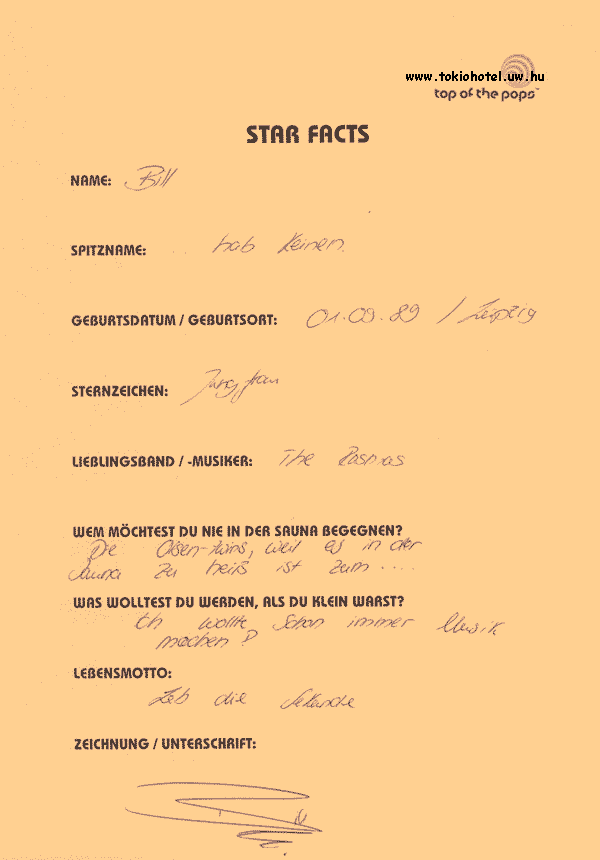 www.tokiohotel.uw.hu
top of the pops™
STAR FACTS
NAME: Bill
SPITZNAME: hab keinen.
GEBURTSDATUM / GEBURTSORT: 01.09.89 / Leipzig
STERNZEICHEN: Jungfrau
LIEBLINGSBAND / -MUSIKER: The Rasmus
WEM MÖCHTEST DU NIE IN DER SAUNA BEGEGNEN?
Die Olsen-twins, weil es in der
Sauna zu heiß ist zum ....
WAS WOLLTEST DU WERDEN, ALS DU KLEIN WARST?
Ich wollte schon immer Musik
machen!
LEBENSMOTTO:
Leb die Sekunde
ZEICHNUNG / UNTERSCHRIFT: